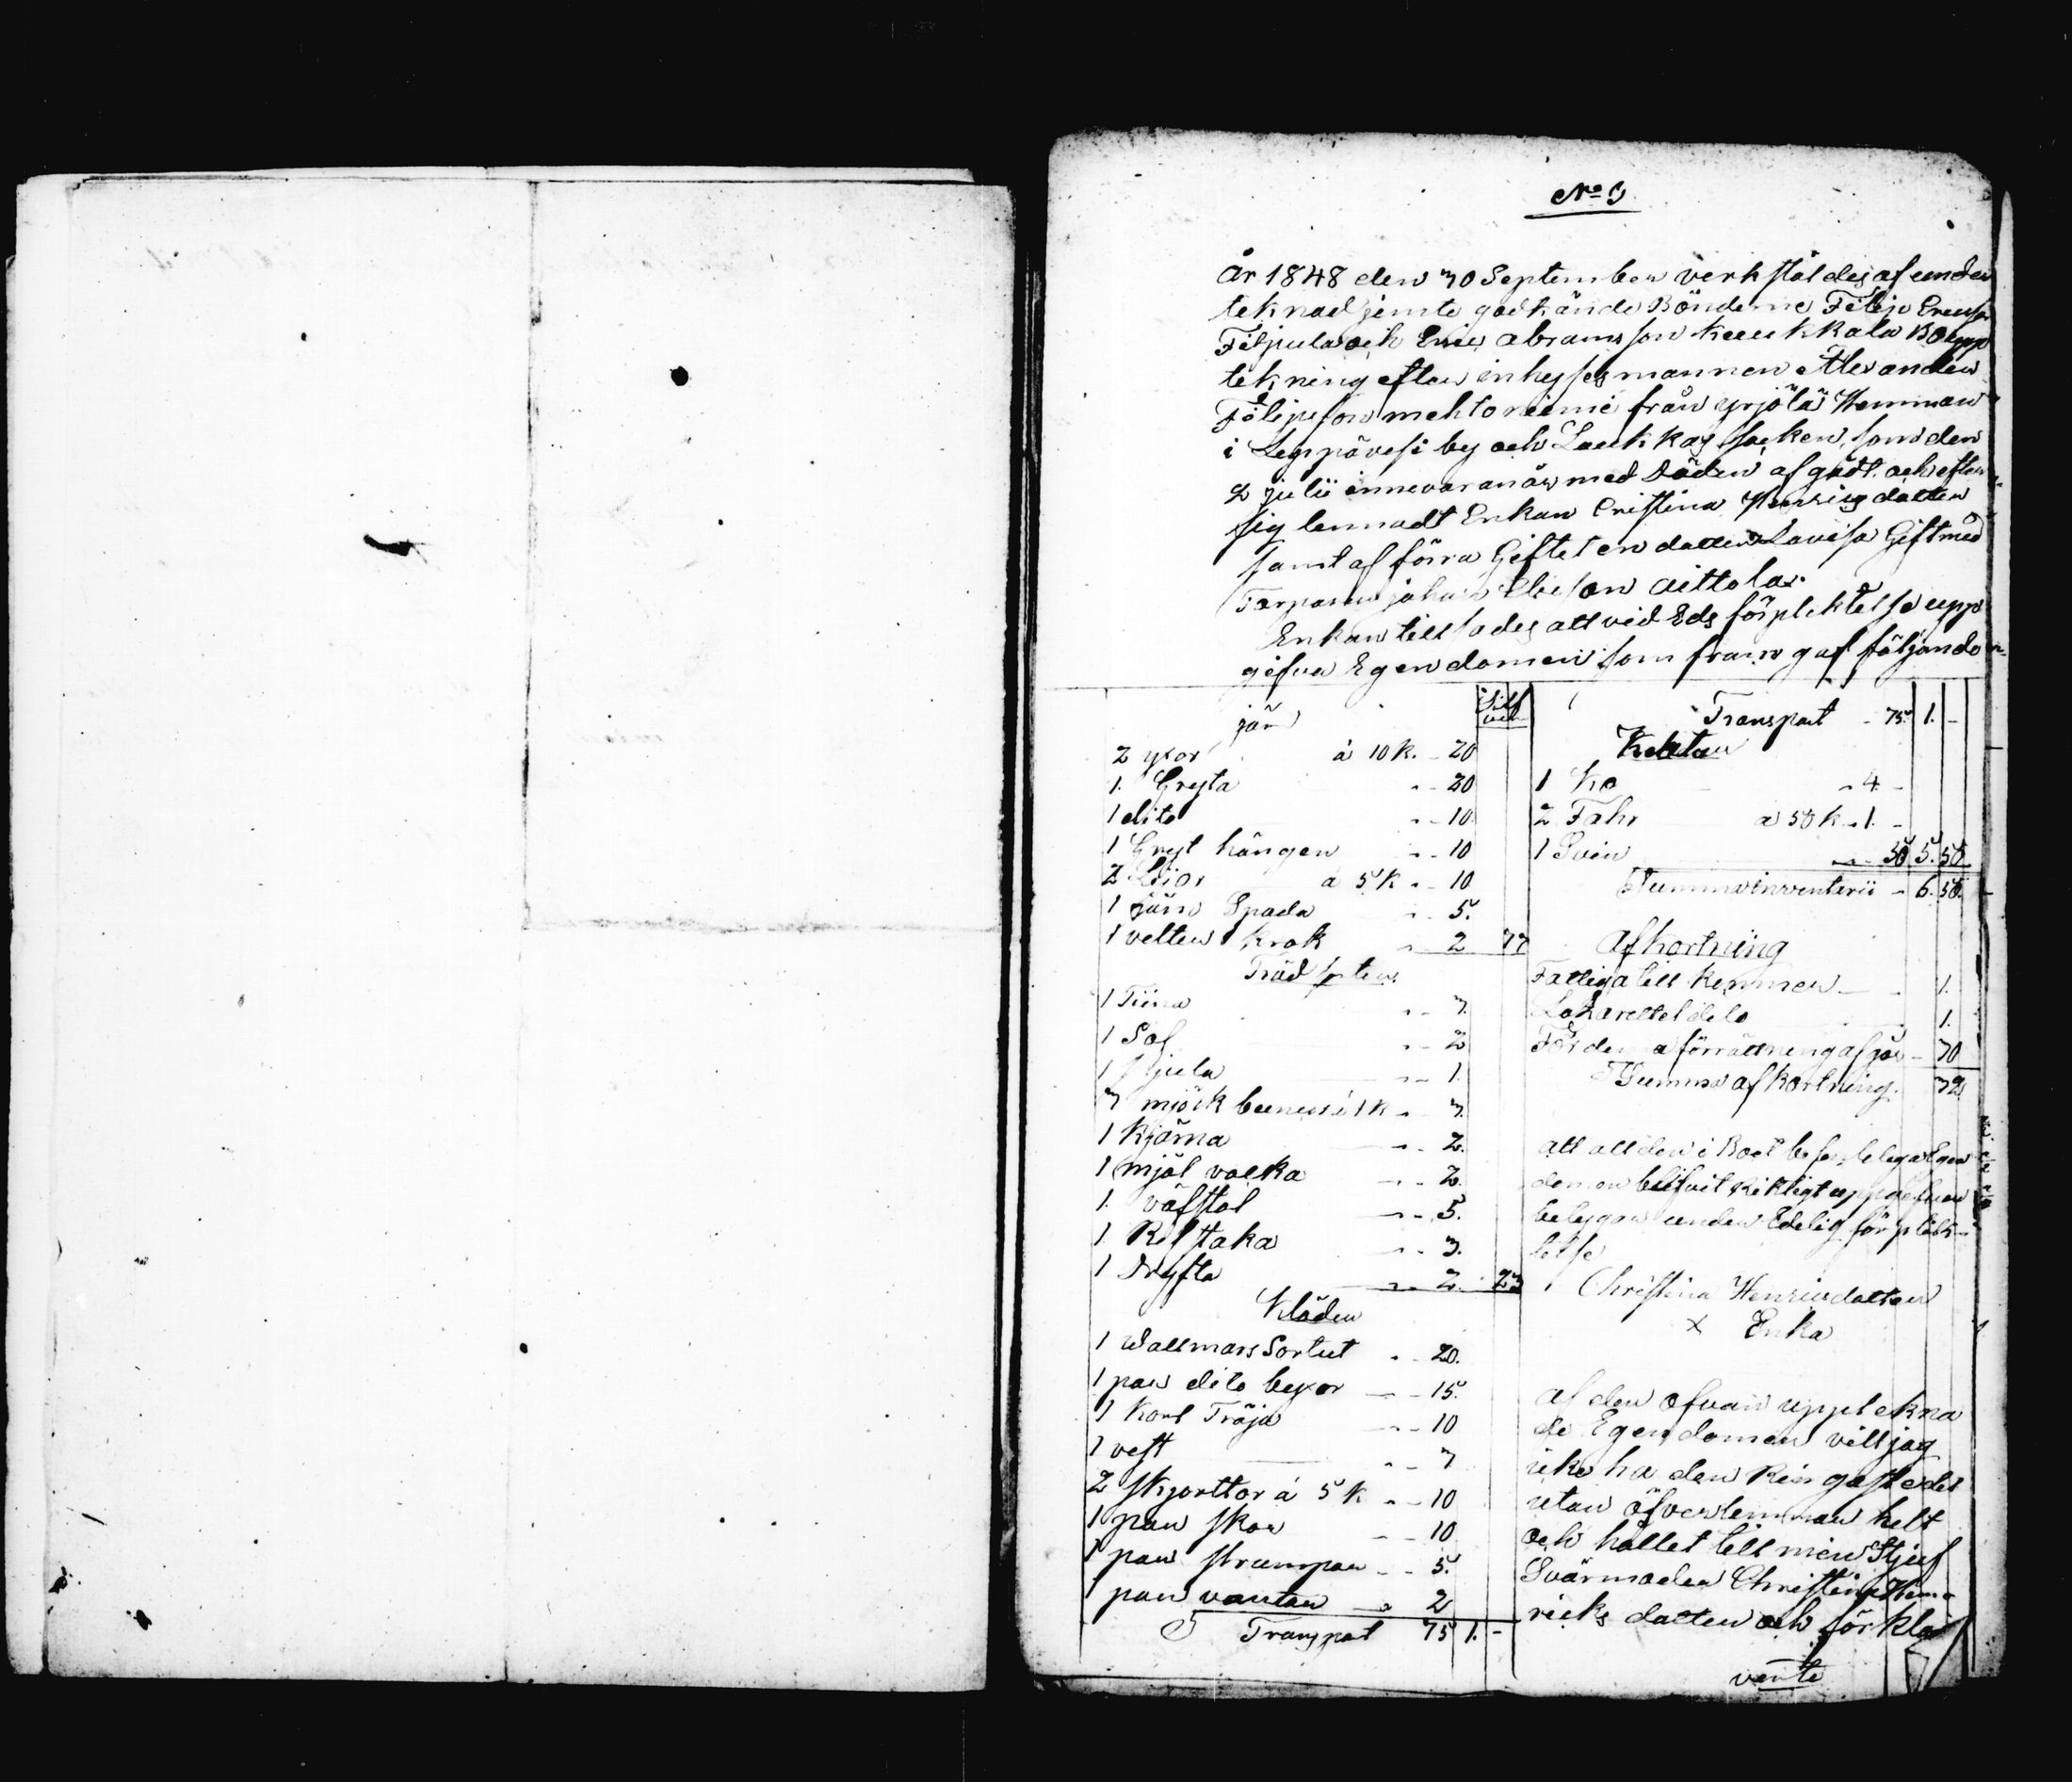 No 9
År 1848 den 30 September verkstäldes af under
teknad jemte godkände Bönderne Filip Ericsson
Filpula och Eric Abramsson Keuckkala Boupp
tekning efter inhyses mannen Alexander
Filipsson mehtoniemi från yrjölä Hemman
i Leppävesi by och Laukkas socken, som den
2 julii innevaran år med Döden afgådt och efter
sig lemnadt Enkan Cristina Henricsdatter
samt af förra Giftet en datter Lovisa Gift med
Torparen johan Elieson Aittola.
Enkan tillsades att vid Eds förpliktelse upp
gifva Egendomen som fram gaf följande
jän
Silf
2 yxor á 10 k. - 20
1. Gryta - 20
1 dito - 10.
1 Gryt hängen - 10
2 Liior a 5 k - 10
1 järn Spada - 5.
1 velten krok - 2 77
Träd saker
1 Tiina - 3.
1 Så - 2
1 - 1.
3 mjölk bunkar á 1 k - 3.
1 Kjärna - 2.
1 mjöl vacka - 2.
1. väfstol - 5.
1 Rel staka - 3.
1 Dryfta - 2. 23
Kläder
1 Wallmars Sortut - 20.
1 par dito byxor - 15.
1 kort Tröja - 10
1 vest - 3
2 skjorttor á 5 k - 10
1 par skor - 10
1 par strumpor - 5.
1 par vantar - 2
Transport 75 1. -
Transport - 75. 1. -
Kreatur
1 Ko - 4 -
2 Fåhr a 50 k - 1. -
1 Svin - 50 5. 50
Summa inventarii - 6. 50.
Afkortning
Fattiga till kommer 1.
Lazarettet dito 1.
För denna förrättning afgår - 30
Summa afkortning. 32
att all den i Boet befinteliga Egen
domen blifvit Riktigt uppgifven
betygar under Edelig förplick-
telse
Christina Henricsdatter
x Enka
af den ofvan upptekna
de Egendomen vill jag
icke ha den Ringaste del
utan öfverlemnar helt
och hållet till min Stjuf
Svärmoder Christina Hen-
ricks datter och förkla
vänte